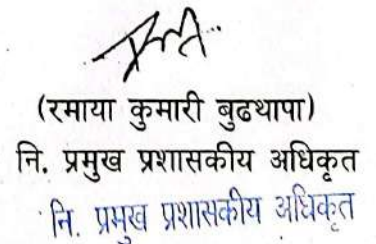 (रमाया कुमारी बुढथापा)
नि. प्रमुख प्रशासकीय अधिकृत
नि. प्रमुख प्रशासकीय अधिकृत